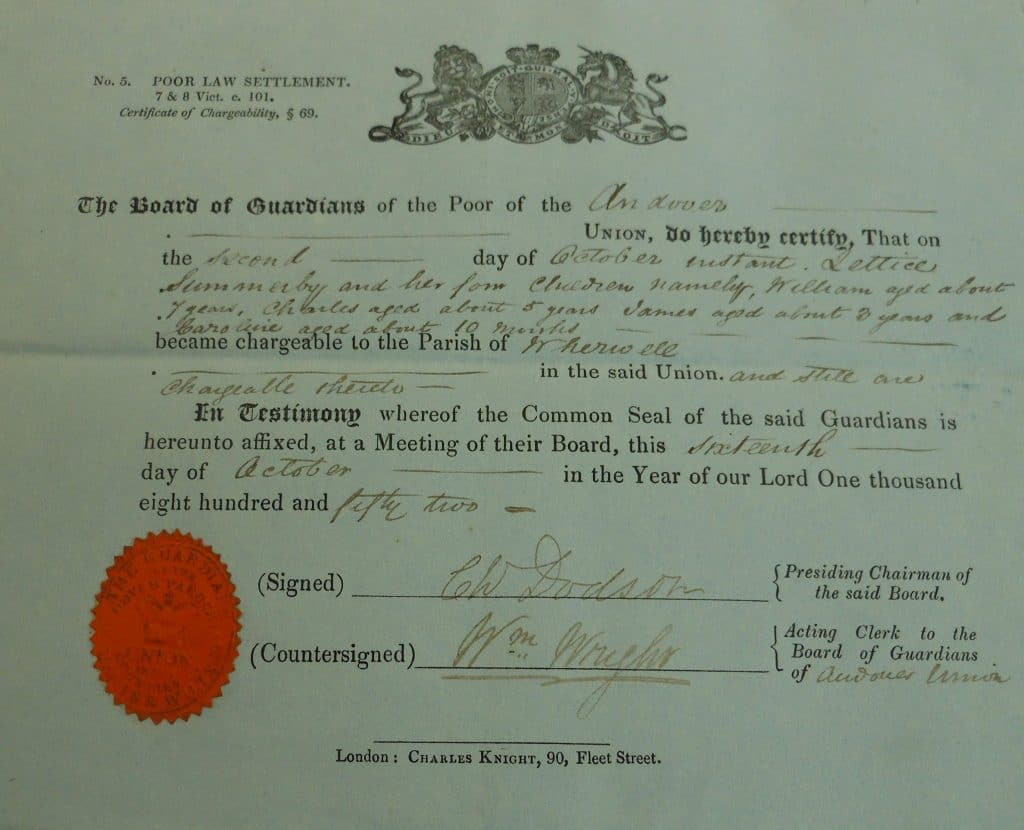 No. 5. POOR LAW SETTLEMENT.
7 & 8 Vict. c. 101.
Certificate of Chargeability, § 69.
SOIT QUI MAL
DIEU ET MON DROIT
The Board of Guardians of the Poor of the Andover
UNION, do hereby certify, That on
the second day of October instant. Lettice
Summerby and her four Children namely, William aged about
7 years, Charles aged about 5 years James aged about 3 years and
Caroline aged about 10 Months
became chargeable to the Parish of Wherwell
in the said Union. and still are
chargeable thereto
In Testimony whereof the Common Seal of the said Guardians is
hereunto affixed, at a Meeting of their Board, this sixteenth
day of October in the Year of our Lord One thousand
eight hundred and fifty two
(Signed) CW Dodson Presiding Chairman of
the said Board.
(Countersigned) Wm Wright Acting Clerk to the
Board of Guardians
of Andover Union
THE GUARDIA
UNION
London: CHARLES KNIGHT, 90, Fleet Street.